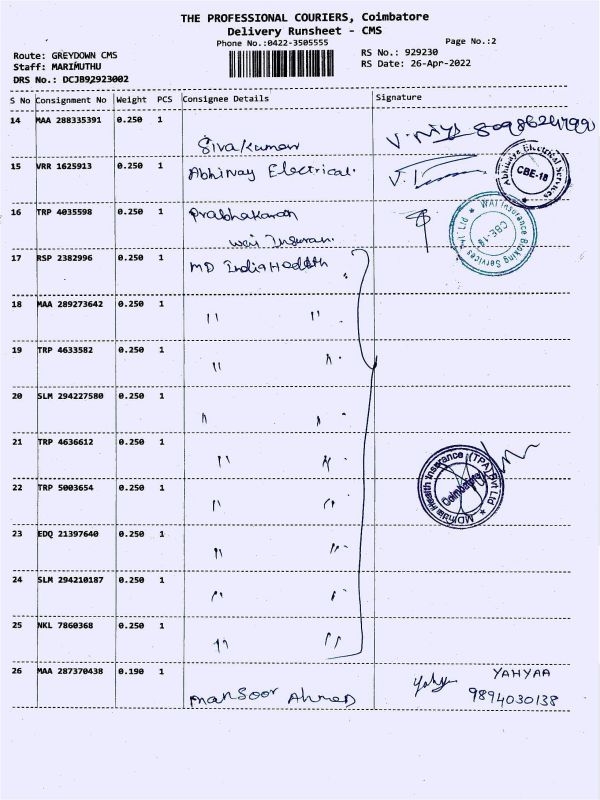 THE PROFESSIONAL COURIERS, Coimbatore
Delivery Runsheet - CMS
Phone No.:0422-3505555
Page No.:2
Route: GREYDOWN CMS
Staff: MARIMUTHU
DRS No.: DCJB92923002
RS No.: 929230
RS Date: 26-Apr-2022
S No Consignment No Weight PCS Consignee Details Signature
14 MAA 288335391 0.250 1
Sivakumar
15 VRR 1625913 0.250 1 Abhinay Electrical.
Abhinaya Electrical Services
CBE-18
16 TRP 4035598 0.250 1 Prabhakaran
WATI Insurance Broking Services Pvt Ltd
CBE-18
17 RSP 2382996 0.250 1 MD India Health
18 MAA 289273642 0.250 1 " "
19 TRP 4633582 0.250 1 " "
20 SLM 294227580 0.250 1 " "
21 TRP 4636612 0.250 1 " "
MDIndia Health Insurance (TPA) Pvt Ltd
Coimbatore
22 TRP 5003654 0.250 1 " "
23 EDQ 21397640 0.250 1 " "
24 SLM 294210187 0.250 1 " "
25 NKL 7860368 0.250 1 " "
26 MAA 287370438 0.190 1
Mansoor Ahmed
Yahya YAHYAA
9894030138